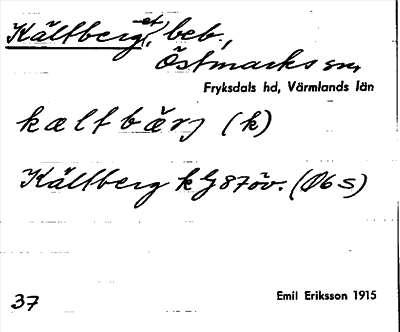 Kältberget, beb.,
Östmarks sn,
Fryksdals hd, Värmlands län
kæltbärj (k)
Kältberg k GS7öv. (Ö6S)
Emil Eriksson 1915
37